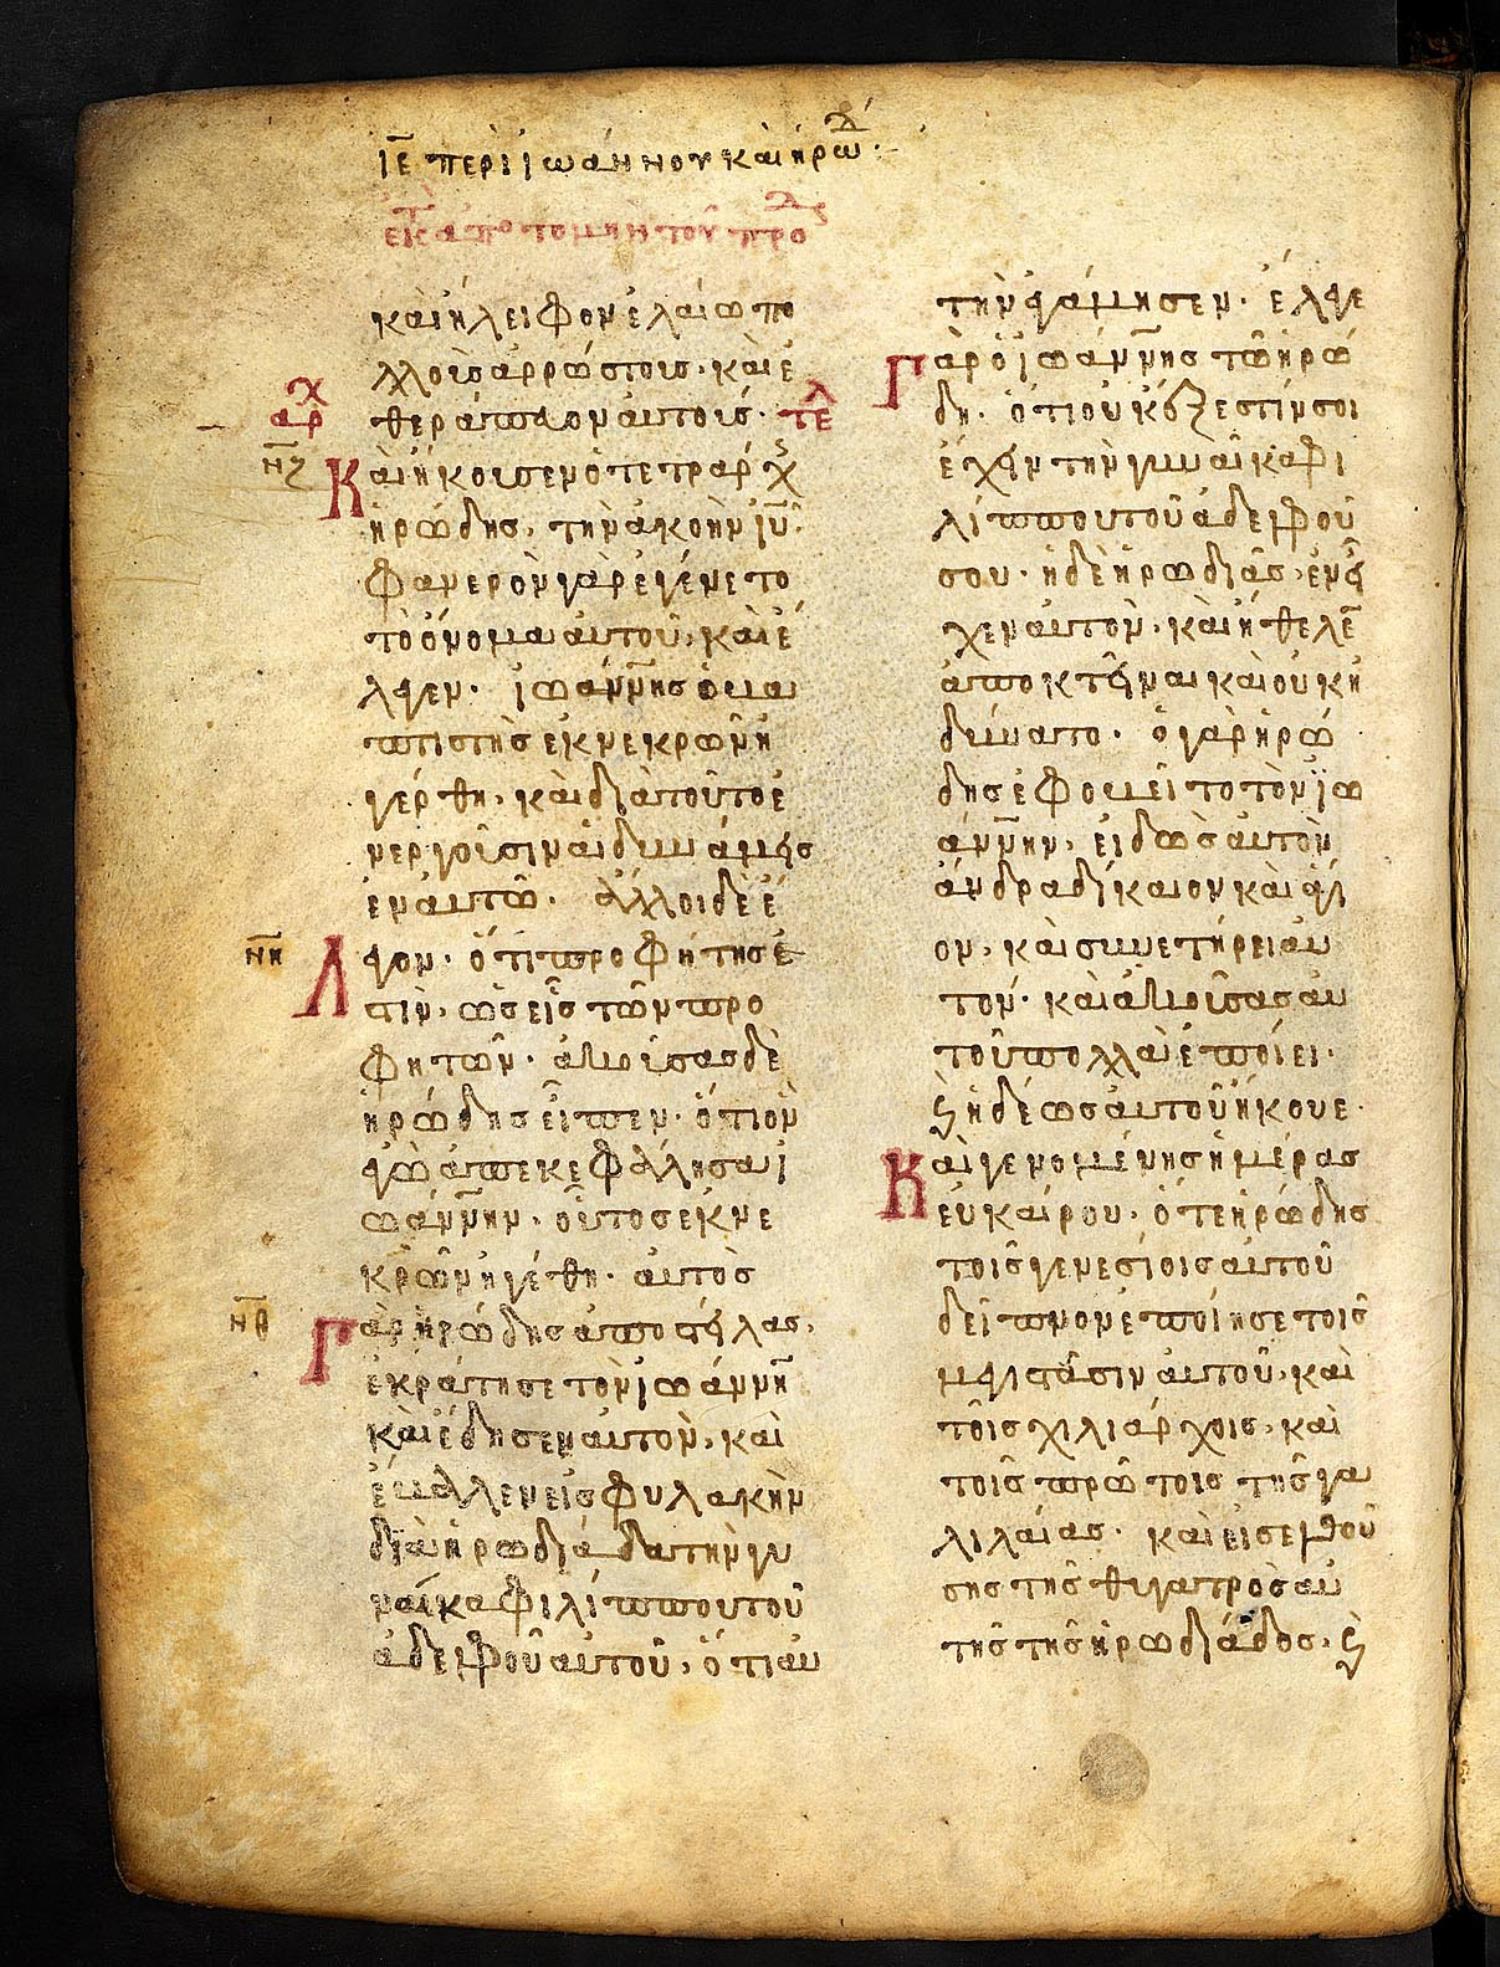 ιε περὶ ἰωάννου καὶ ἡρώδ
εἰς τ ἀποτομὴν τοῦ προδρ
καὶ ἤλειφον ἐλαίω πο
λλοὺς ἀρρώστους· καὶ ἐ
αρχ θεράπευον αὐτούς· τελ
νζ Καὶ ἤκουσεν ὁ τετράρχ
ἡρώδης, τὴν ἀκοὴν ιυ·
φανερὸν γὰρ ἐγένετο
τὸ ὄνομα αὐτοῦ, καὶ ἔ
λεγεν· ἰωάννης ὁ βα
πτιστὴς ἐκ νεκρῶν ἠ
γέρθη, καὶ διὰ τοῦτο ἐ
νεργοῦσιν αἱ δυνάμεις
ἐν αὐτῶ· ἄλλοι δὲ ἔ
νη Λεγον· ὅτι προφήτης ἐ
στὶν, ὡς εἷς τῶν προ
φητῶν· ἀκούσας δὲ
ἡρώδης εἶπεν· ὅτι ὃν
ἐγὼ ἀπεκεφάλησα ἰ
ωάννην, οὗτος ἐκ νε
κρῶν ἠγέθη· αὐτὸς
νθ Γὰρ ἡρώδης ἀποστείλας,
ἐκράτησε τὸν ἰωάννη
καὶ ἔδησεν αὐτὸν, καὶ
ἔβαλλεν εἰς φυλακὴν
διὰ ἡρωδιάδα τὴν γυ
ναίκα φιλίππου τοῦ
ἀδελφοῦ αὐτοῦ, ὅτι αὐ
τὴν ἐγάμησεν· ἔλεγε
Γὰρ ὁ ἰωάννης τῶ ἡρώ
δη· ὅτι οὐκ ἔξεστίν σοι
ἔχειν τὴν γυναῖκα φι
λίππου τοῦ ἀδελφοῦ
σου· ἡ δὲ ἡρωδιὰς, ἐνεῖ
χεν αὐτὸν, καὶ ἤθελεν
ἀποκτεῖναι καὶ οὐκ ἠ
δύνατο· ὁ γὰρ ἡρώ
δης ἐφοβεῖτο τὸν ἰω
άννην, εἰδὼς αὐτὸν
ἄνδρα δίκαιον καὶ ἅγι
ον, καὶ συνετήρει αὐ
τόν· καὶ ἀκούσας αὐ
τοῦ πολλὰ ἐποίει·
ϗ ἡδέως αὐτοῦ ἤκουε·
Καὶ γενομένης ἡμέρας
εὐκαίρου· ὅτε ἡρώδης
τοῖς γενεσίοις αὐτοῦ
δεῖπνον ἐποίησε τοῖς
μεγιστᾶσιν αὐτοῦ, καὶ
τοῖς χιλιάρχοις, καὶ
τοῖς πρώτοις τῆς γα
λιλαίας· καὶ εἰσελθού
σης τῆς θυγατρὸς αὐ
τῆς τῆς ἡρωδιάδος, ϗ